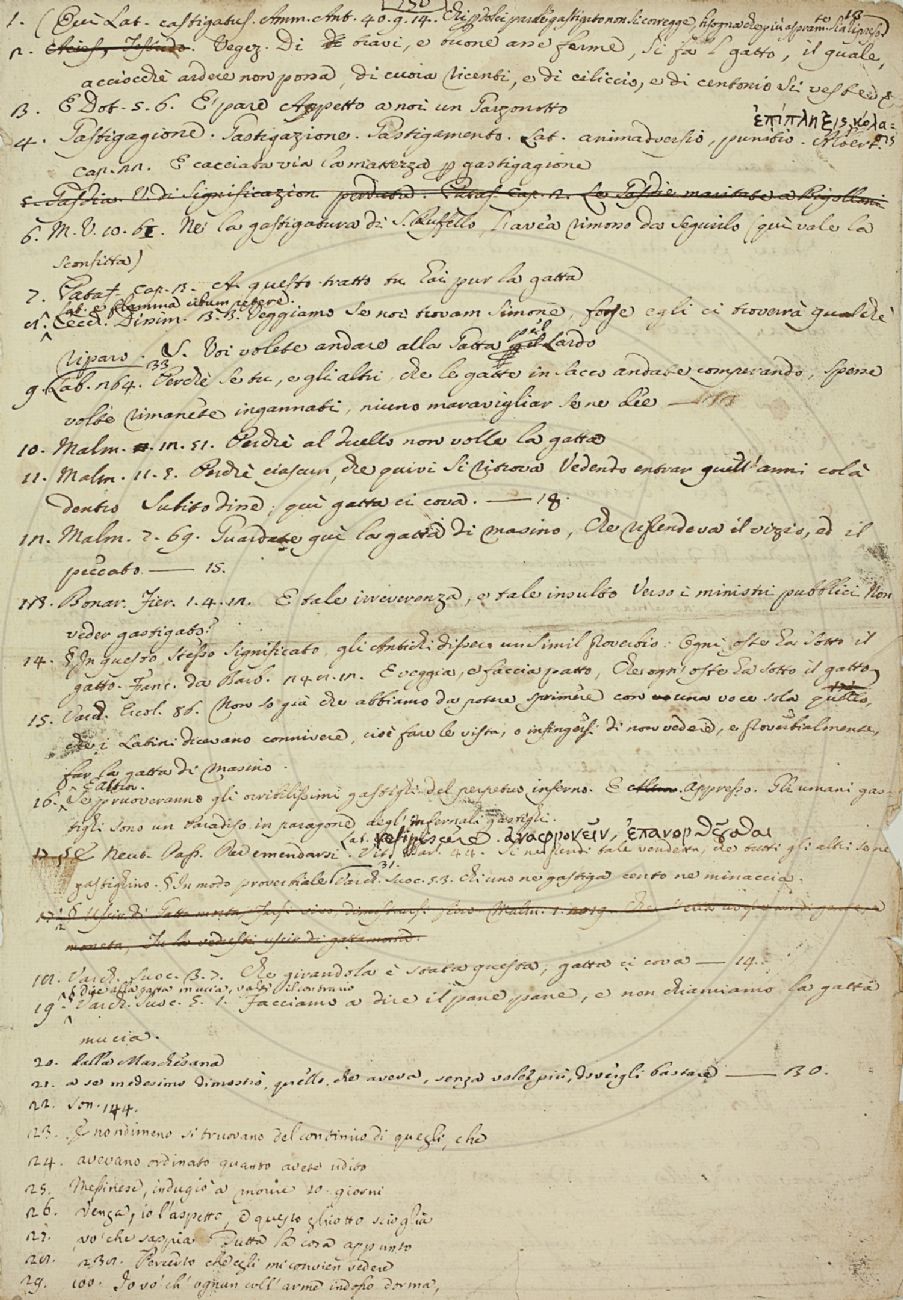 1. (Quì Lat. castigatus. Amm. Ant. 40. 9. 14. Chi per dolci parole gastigato non si corregge, bisogna che più aspram.te sia ripreso. 18
2. Vegez. Di travi, e buone asse ferme, si fa il gatto, il quale,
acciocchè ardere non possa, di cuoia ricenti, e di ciliccio, e di centonio si veste
3. E Dot. 5. 6. E' pare appetto a noi un Garzonotto
ἐπίπληξις, κόλασις
4. Gastigagione. Gastigazione. Gastigamento. Lat. animadversio, punitio.
cap. 22. E cacciata via la mattezza p gastigagione
5. V. di Significazion. perduta. Pataf. Cap. 2. maritate a Rigolloni
6. M. V. 10. 61. Nè la gastigatura di S. Ruffello l'avea rimono da seguilo (quì vale la
sconfitta)
7. Pataf. cap. 3. A questo tratto tu hai pur la gatta
Lat. e flamma cibum petere.
8. Cecch. Dissim. 3. 3. Veggiamo se noi troviam Simone, forse egli ci troverrà qualchè
riparo. S. Voi volete andare alla Gatta pel Lardo
9. Lab. 264. 33 Perchè se tu, e gli altri, che le gatte in sacco andate comperando, spesse
volte rimanete ingannati, niuno maravigliar se ne dee
10. Malm. 12. 51. Perchè al duello non volle la gatta
11. Malm. 11. 5. Perchè ciascun, che quivi si ritrova Vedendo entrar quell'armi colà
dentro Subito dice; quì gatta ci cova. — 18.
12. Malm. 7. 69. Guardate quì la gatta di masino, Che riprendeva il vizio, ed il
peccato — 15.
13. Bonar. Fier. 1. 4. 12. E tale irreverenza, e tale insulto Verso i ministri pubblici Non
veder gastigato?
14. § In questo stesso significato, gli Antichi dissero un simil proverbio: Ogni oste ha sotto il
gatto. Franc. da Barb. E veggia, e faccia patto, Che ogn'oste ha sotto il gatto
15. Varch. Ercol. 86. Non so già che abbiamo da potere sprimere con una voce sola quello,
che i Latini dicevano connivere, cioè fare le vista, o infingersi di non vedere, e proverbialmente,
far la gatta di masino.
E altrov.
16. Se pruoveranno gli orribilissimi gastighi del perpetuo inferno. E Appresso. Gli umani gas-
tighi sono un Paradiso in paragone degl'infernali gastighi.
Lat. resipiscere. ἀναφρονεῖν, ἐπανορθοῦσθαι
17. § E Neut. Pass. Per emendarsi. 44. Si ne prendi tale vendetta, che tutti gli altri se ne
gastighino. § In modo proverbiale Varch. Suoc. 5. 3. Chi uno ne gastiga cento ne minaccia.
moneta, Tu la vedresti uscir di gattamorta.
18. Varch. Suoc. 3. 7. Che girandola è stata questa; gatta ci cova — 14.
§ Dire alla gatta mucia, vale il contrario
19. Varch. Suoc. 5. 1. Facciamo a dire il pane pane, e non chiamiamo la gatta
mucia.
20. Dalla Marchesana
21. a se medesimo dimostrò, quello, che aveva, senza voler più, dovergli bastare — 30.
22. Son. 144.
23. E nondimeno si truovano del continuo di quegli, che
24. avevano ordinato quanto avete udito
25. Messinese, indugiò a morire 10. giorni
26. Venga, io l'aspetto, e questo gliotto scioglia
27. vo' che sappia Tutta la cosa appunto
28. 232. Perciò che egli mi convien vedere
29. 100. Io vo' ch'ognun coll'arme indosso dorma,